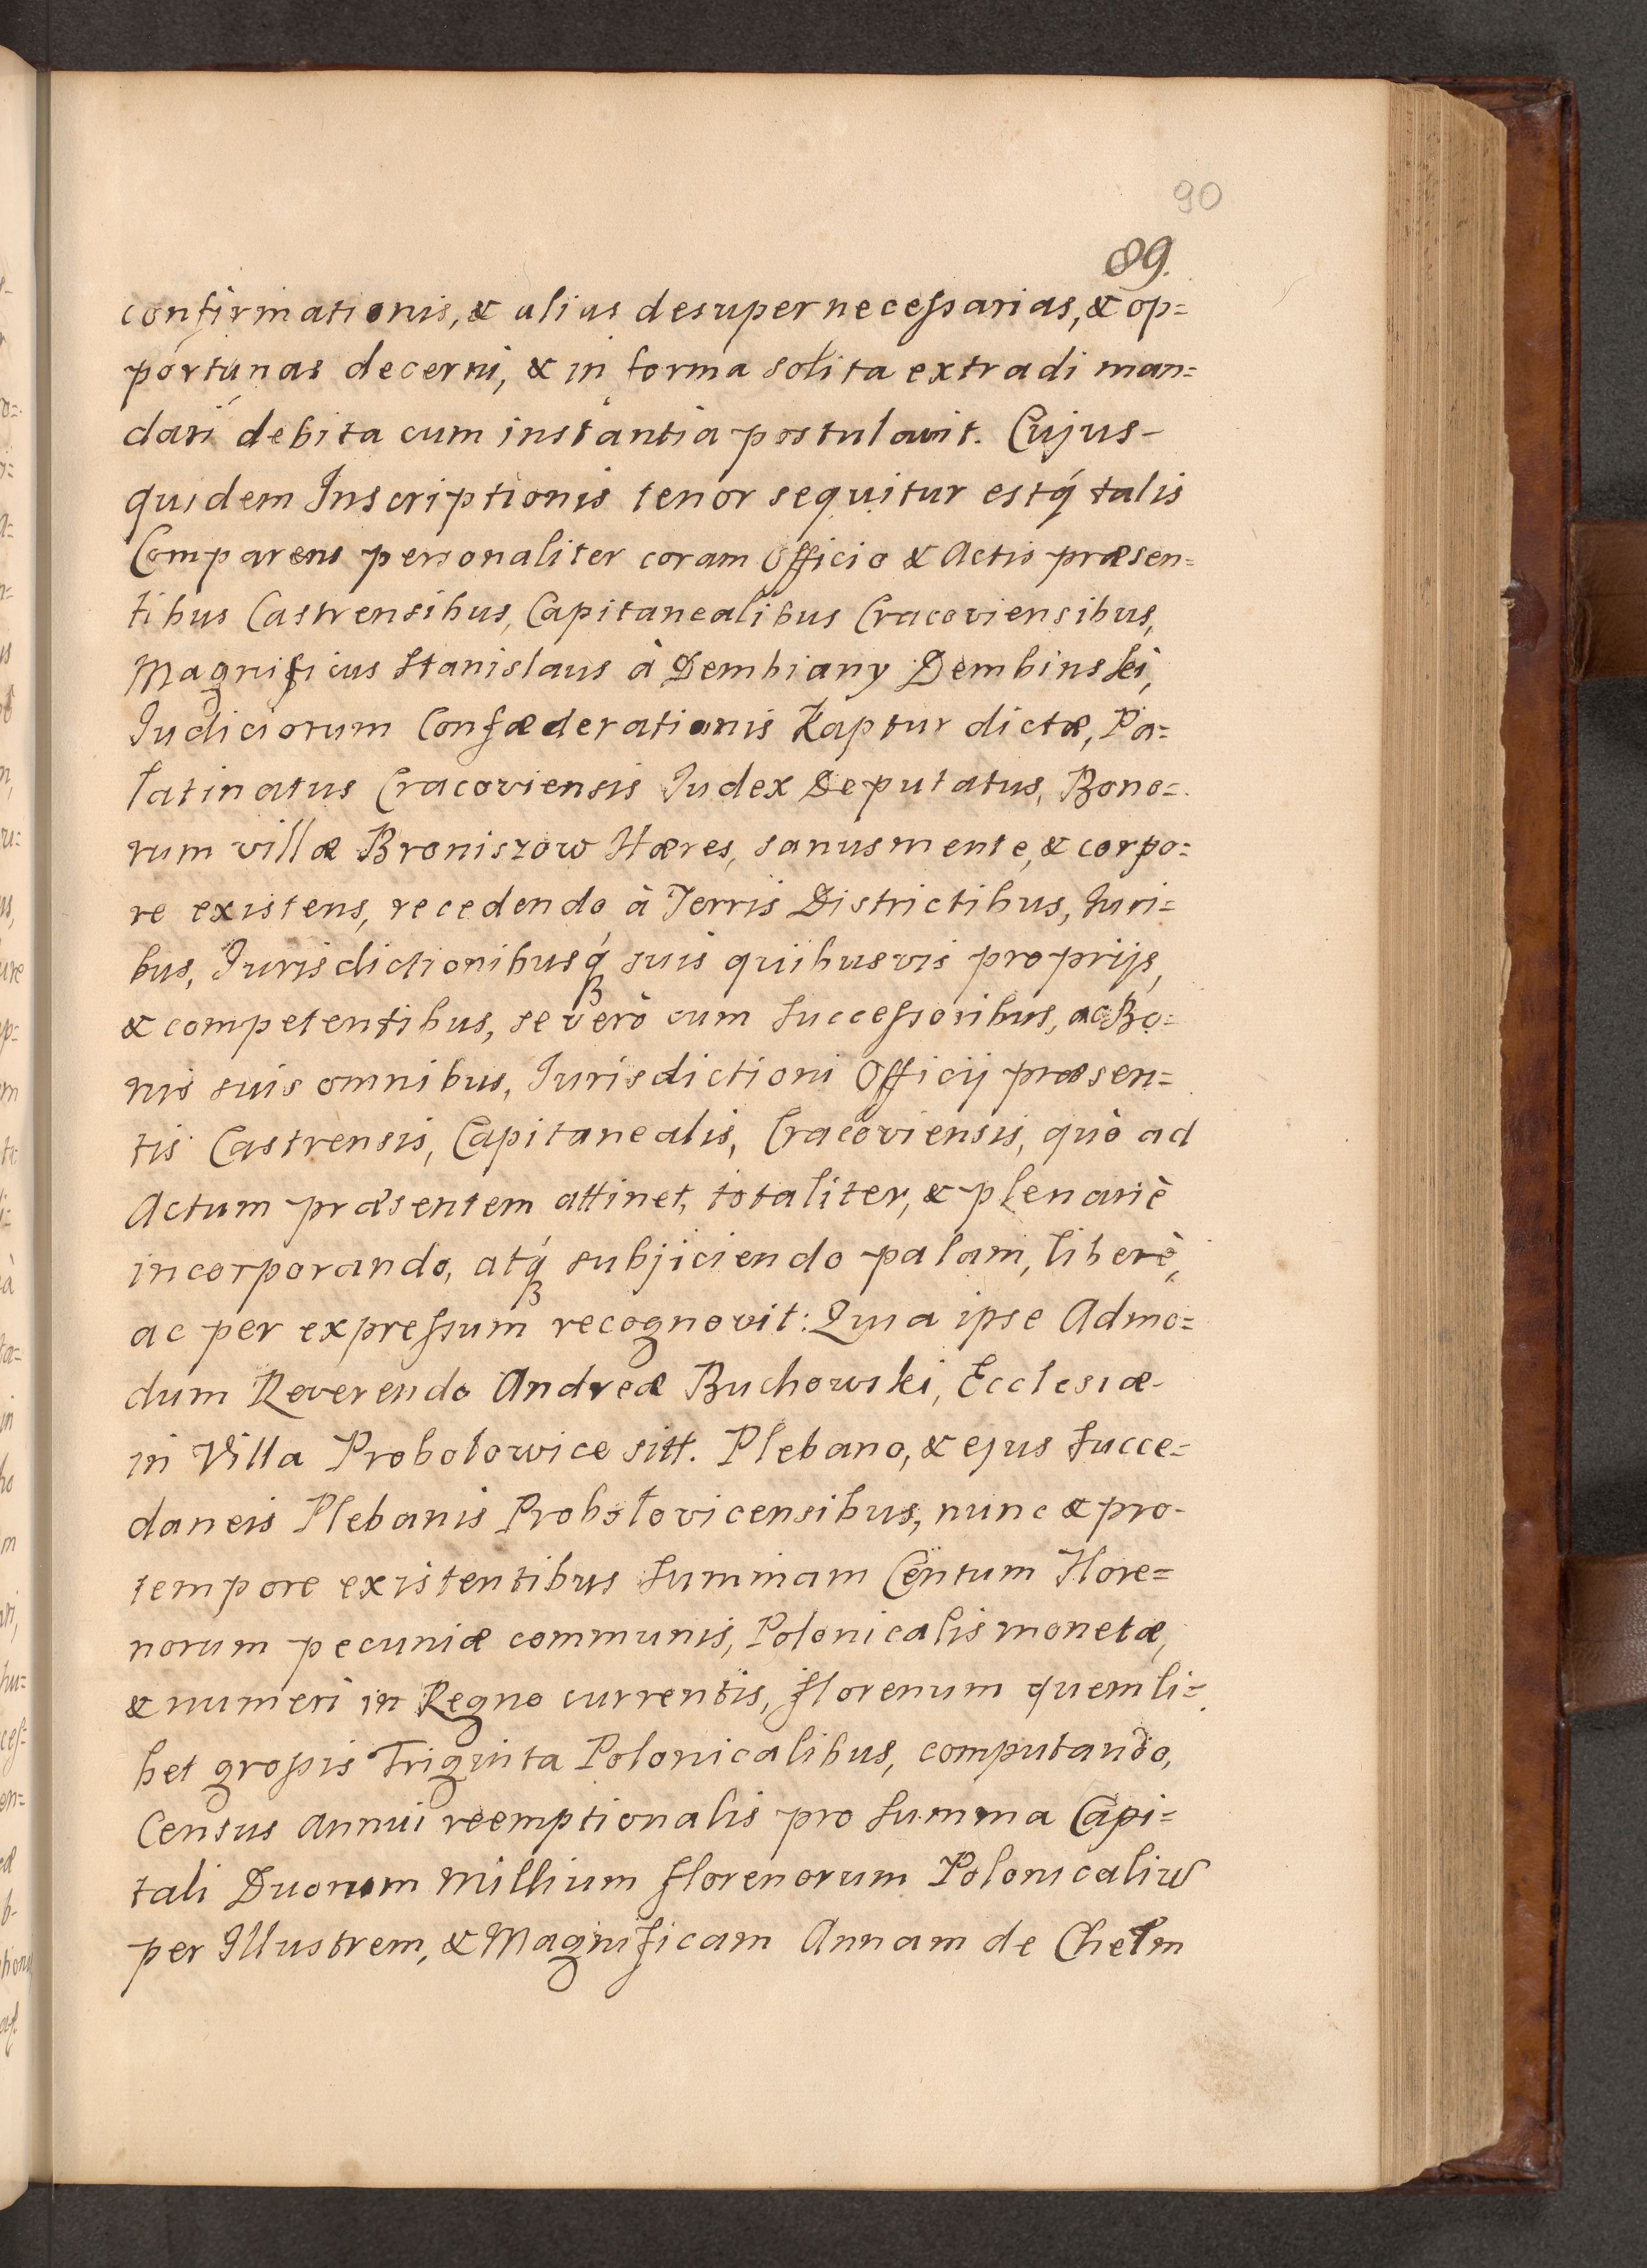 90
89.
confirmationis, & alias desuper necessarias, & op=
portunas decerni, & in forma solita extradi man=
dari debita cum instantia postulavit. Cujus-
quidem Inscriptionis tenor sequitur estq́ talis
Comparens personaliter coram Officio & Actis præsen=
tibus Castrensibus, Capitanealibus Cracoviensibus,
Magnificus Stanislaus à Dembiany Dembinski,
Judiciorum Confæderationis Kaptur dictæ, Pa=
latinatus Cracoviensis Judex Deputatus, Bono=
rum villæ Broniszow Hæres, sanus mente, & corpo=
re existens, recedendo à Terris Districtibus, Juri=
bus, Jurisdictionibusq́ suis quibusvis proprijs,
& competentibus, se verò cum Successoribus, ac Bo=
nis suis omnibus, Jurisdictioni Officij præsen=
tis Castrensis, Capitanealis, Cracoviensis, quò ad
Actum præsentem attinet, totaliter, & plenariè
incorporando, atq́ subjiciendo palam, liberè,
ac per expressum recognovit: Quia ipse Admo=
dum Reverendo Andreæ Buchowski, Ecclesiæ-
in Villa Probołowice sitt. Plebano, & ejus Succe=
daneis Plebanis Probołovicensibus, nunc & pro-
tempore existentibus Summam Centum Flore=
norum pecuniæ communis, Polonicalis monetæ,
& numeri in Regno currentis, florenum quemli=
bet grossis Triginta Polonicalibus, computando,
Census annui reemptionalis pro Summa Capi=
tali Duorum Millium florenorum Polonicaliu͂
per Illustrem, & Magnificam Annam de Chełm